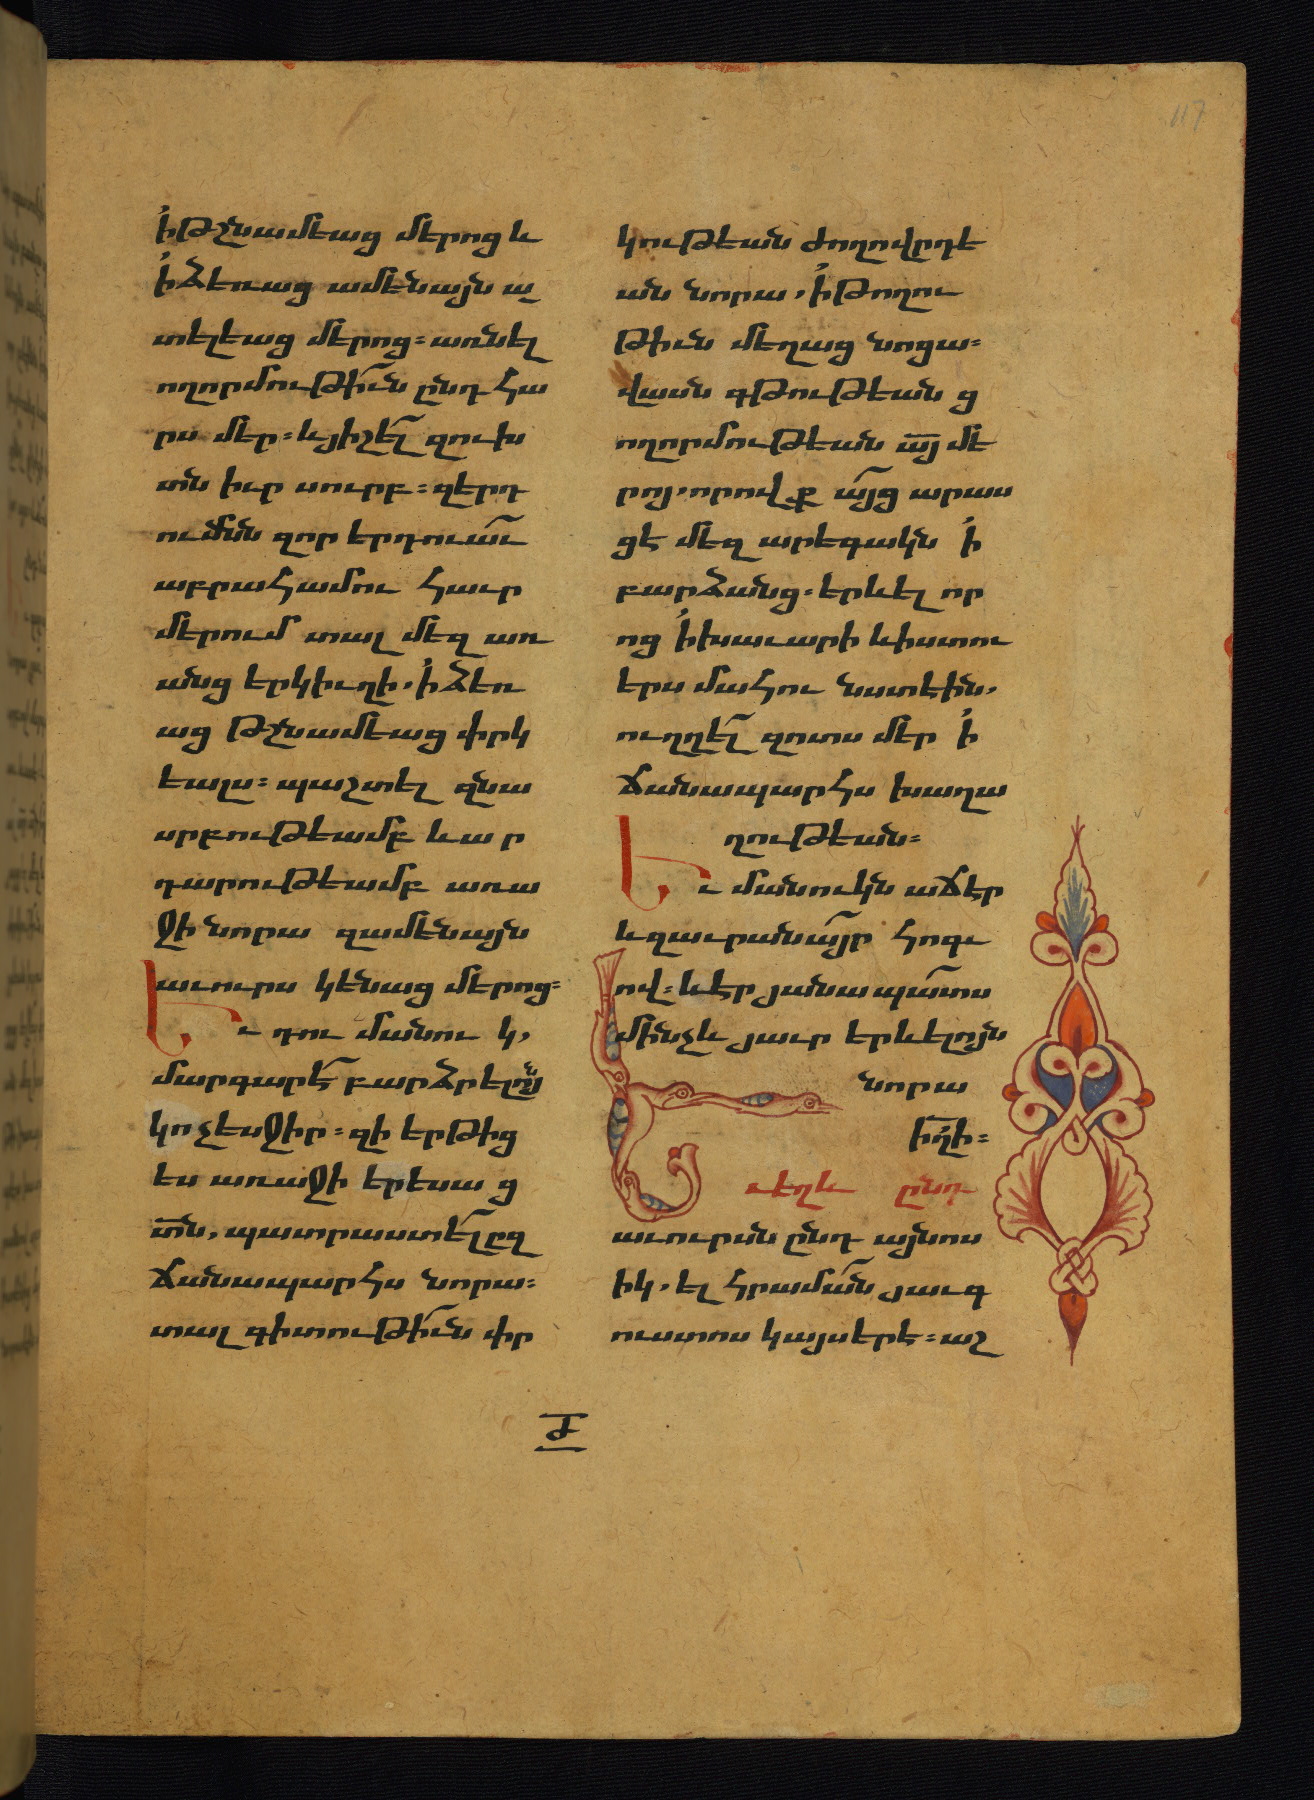 ի թշնամեաց մերոց և
ի ձեռաց ամենայն ա
տելեաց մերոց։ առնել
ողորմութի՟ւն ընդ հա
րս մեր։ և յիշե՟լ զուխ
տն իւր սուրբ։ զերդ
ումնն զոր երդուա՟ւ
աբրահամու հաւր
մերում տալ մեզ առ
անց երկիւղի, ի ձեռ
աց թշնամեաց փրկ
եալս։ պաշտել զնա
սրբութեամբ և ար
դարութեամբ առա
ջի նորա զամենայն
աւուրս կենաց մերոց։
Եւ դու մանու կ,
մարգարէ՟ բարձրելոյն
կոչեսջիր։ զի երթից
ես առաջի երեսա ց
տն՟, պատրաստե՟լ ըզ
ճանապարհս նորա։
տալ գիտութի՟ւն փր
կութեան ժողովըրդե
ան նորա, ի թողու
թիւն մեղաց նոցա։
վասն գթութեան ց
ողորմութեան ա՟յ մե
րոյ, որովք ա՟յց արաս
ցէ մեզ արեգակն ի
բարձանց։ երևել որ
ոց ի խաւարի և ի ստու
երս մահու նստէին,
ուղղե՟լ զոտս մեր ի
ճանապարհս խաղա
ղութեան։
Եւ մանուկն աճէր
և զաւրանա՟յր հոգւ
ով։ և էր յանապա՟տս
մինչև յաւր երևելոյն
նորա
ի՟ղի։
Եւ եղև ընդ
աւուրսն ընդ այնոս
իկ, ել հրամա՟ն յաւգ
ոստոս կայսերէ։ աշ
Ժ
117